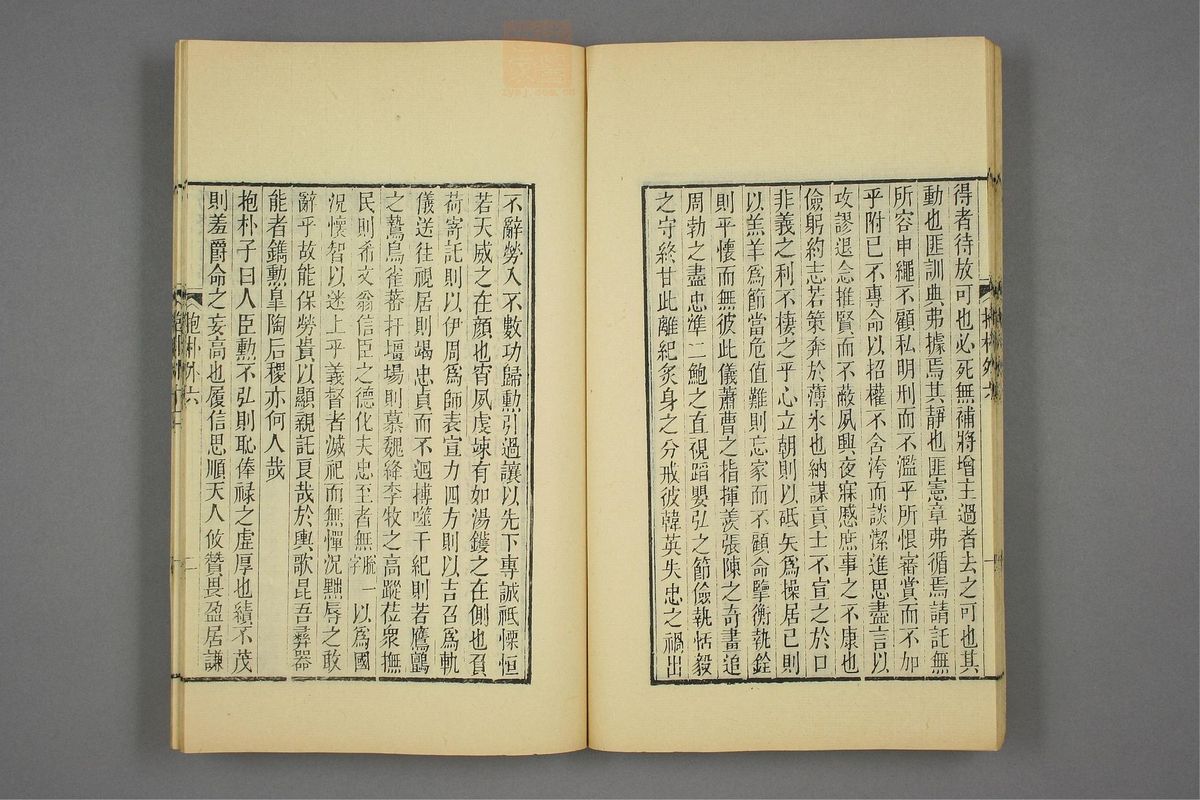 得者待放可也必死無補將增主過者去之可也其
動也匪訓典弗據焉其靜也匪憲章弗循焉請託無
所容申繩不顧私明刑而不濫乎所恨審賞而不加
乎附己不專命以招權不含洿而談潔進思盡言以
攻謬退念推賢而不蔽夙興夜寐慼庶事之不康也
儉躬約志若策奔於薄氷也納謀貢士不宣之於口
非義之利不棲之乎心立朝則以砥矢爲操居己則
以羔羊爲節當危值難則忘家而不顧命擥衡執銓
則平懷而無彼此儀蕭曹之指揮羨張陳之奇畫追
周勃之盡忠準二鮑之直視蹈嬰弘之節儉執恬毅
之守終甘此離紀炙身之分戒彼韓英失忠之禍出
不辭勞入不數功歸勲引過讓以先下專誠祗慄恒
若天威之在顔也宵夙虔竦有如湯鑊之在側也負
荷寄託則以伊周爲師表宣力四方則以吉召爲軌
儀送往視居則竭忠貞而不迴搏噬干紀則若鷹鸇
之鷙鳥雀蕃扞壃場則慕魏絳李牧之高蹤莅衆撫
民則希文翁信臣之德化夫忠至者無脱字一以爲國
況懷智以迷上乎義督者滅祀而無憚況黜辱之敢
辭乎故能保勞貴以顯親託哀哉於輿歌昆吾彞器
能者鐫勲臯陶后稷亦何人哉
抱朴子曰人臣勲不弘則恥俸祿之虛厚也績不茂
則羞爵命之妄高也履信思順天人攸贊畏盈居謙
抱朴外六